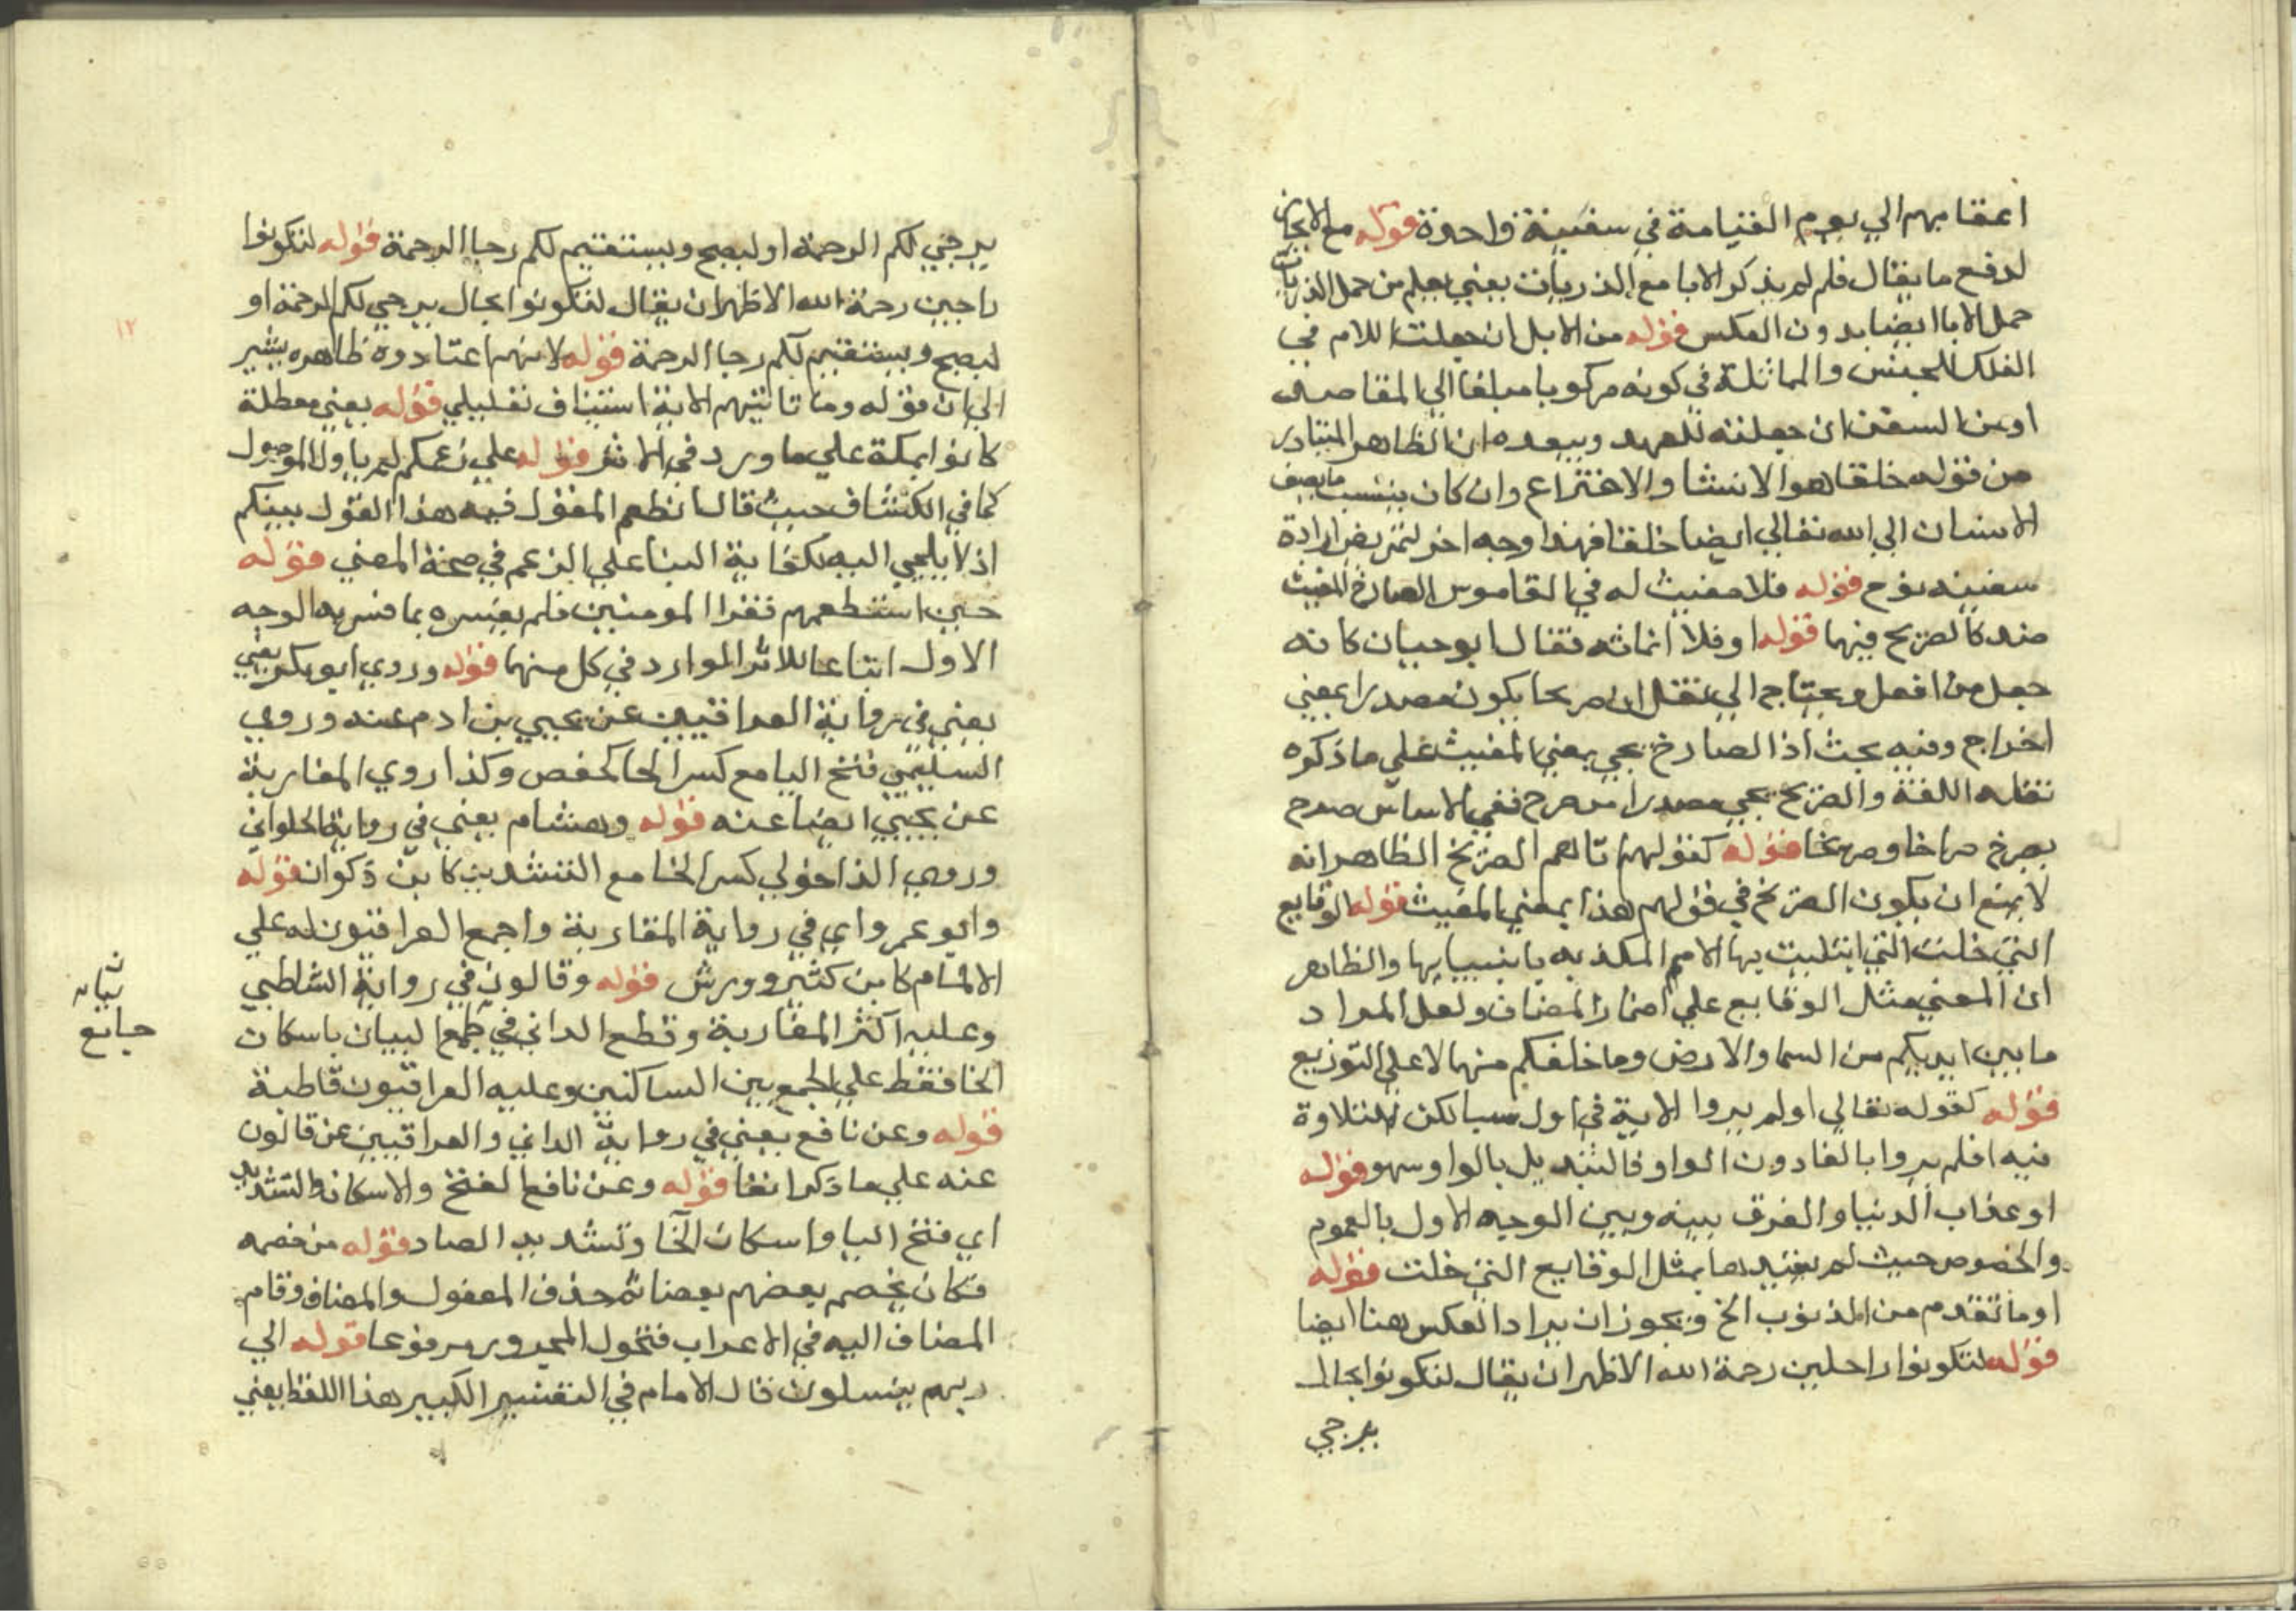 اعقابهم الي يوم القيامة في سفينة واحدة قوله مع الايجاز
لدفع ما يقال فلم لم يذكر الابا مع الذريات يعني يعلم من حمل الذريات
حمل الابا ايضا بدون العكس قوله من الابل ان جعلت اللام في
الفلك للجنس والمماثلة في كونه مركوبا مبلغا الي المقاصد
او من السفن ان جعلته للعهد ويبعده ان الظاهر المتبادر
من قوله خلقنا هو الانشا والاختراع وان كان ينسب ما يصنف
الانسان الي الله تعالي ايضا خلقا فهذا وجه اخر لتمريض ارادة
سفينه نوح قوله فلا مغيث له في القاموس الصارخ المغيث
ضد كالصريخ فيهما قوله او فلا اغاثه فقال ابو حيان كانه
جعل من افعل ويحتاج الي نقل ان صريخا يكون مصدرا بمعني
اخراج وفيه بحث اذ الصارخ يجي بمعني المغيث علي ما ذكره
نقله اللغة والصريخ يجي مصدرا من صرخ ففي الاساس صرخ
يصرخ صراخا وصريخا قوله كقولهم اتاهم الصريخ الظاهر انه
لا يمنع ان يكون الصريخ في قولهم هذا بمعني المغيث قوله الوقايع
التي خلت التي ابتليت بها الامم المكذبه بانبيايها والظاهر
ان المعني مثل الوقايع علي اضمار المضاف ولعل المراد
ما بين ايديكم من السما والارض وما خلفكم منهما لا علي التوزيع
قوله كقوله تعالي اولم يروا الاية في اول سبا لكن التلاوة
فيه افلم يروا بالفا دون الواو فالتبديل بالواو سهو قوله
او عذاب الدنيا والفرق بينه وبين الوجه الاول بالعموم
والخصوص حيث لم يقيد ها بمثل الوقايع التي خلت قوله
او ما تقدم من الذنوب الخ ويجوز ان يراد العكس هنا ايضا
قوله لتكونوا راحلين رحمة الله الاظهر ان يقال لتكونوا بحال
يرجي
يرجي لكم الرحمة او ليصح ويستقيم لكم رجا الرحمة قوله لتكونوا
راجين رحمة الله الاظهر ان يقال لتكونوا بحال يرجي لكم الرحمة او
ليصح ويستقيم لكم رجا الرحمة قوله لانهم اعتادوه ظاهره يشير
الي ان قوله وما تاتيهم الاية استيناف تعليلي قوله يعني معطلة
كانوا بمكة علي ما ورد في الاثر قوله علي زعمكم لم ياول الموصول
كما في الكشاف حيث قال انطعم المقول فيه هذا القول بينكم
اذ لا يلجي اليه لكفاية البنا علي الزعم في صحة المعني قوله
حين استطعمهم فقرا المومنين فلم يفسره بما فسر به الوجه
الاول اتباعا للاثر الوارد في كل منهما قوله وروي ابو بكر يعني
يعني في رواية العراقيين عن يحيي بن ادم عنه وروي
السليمي فتح اليا مع كسر الخا كحفص وكذا روي المغاربة
عن يحيي ايضا عنه قوله وهشام يعني في رواية الحلواني
وروي الداجوني كسر الخا مع التشديد كابن ذكوان قوله
وابو عمرو اي في رواية المغاربة واجمع العراقيون له علي
الاتمام كابن كثير وورش قوله وقالون في رواية الشاطبي
وعليه اكثر المغاربة وقطع الداني في جمع البيان باسكان
الخا فقط علي الجمع بين الساكنين وعليه العراقيون قاطبة
قوله وعن نافع يعني في رواية الداني والعراقيين عن قالون
عنه علي ما ذكر انفا قوله وعن نافع الفتح والاسكان والتشديد
اي فتح اليا واسكان الخا وتشديد الصاد قوله من خصمه
فكان يخصم بعضهم بعضا ثم حذف المفعول والمضاف وقام
المضاف اليه في الاعراب فتحول المجرور مرفوعا قوله الي
ربهم ينسلون قال الامام في التفسير الكبير هذا اللفظ يعني
١٢